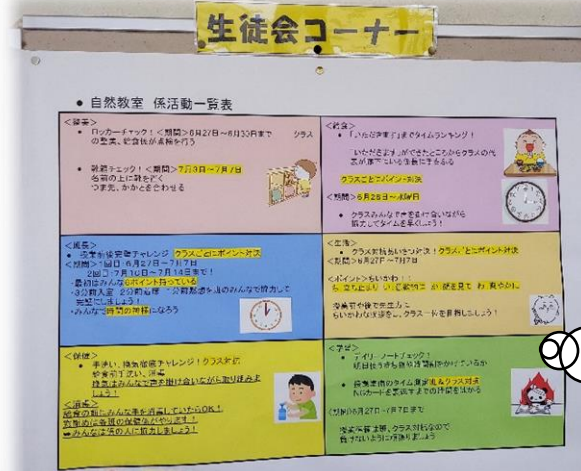 生徒会コーナー
● 自然教室 係活動一覧表
<整美>
● ロッカーチェック!<期間>6月27日~6月30日まで
クラス
の整美、給食係が点検を行う
● 靴箱チェック!<期間>7月3日~7月7日
名前の上に靴を置く
つま先、かかとを合わせる
<給食>
● 「いただきます」までタイムランキング!
「いただきます」ができたところからクラスの代
クラスごとにポイント対決
<期間>6月26日~
● クラスみんなで声を掛け合いながら
協力してタイムを早くしよう!
<級長>
● 授業前後完璧チャレンジ クラスごとにポイント対決
<期間>1回目:6月27日~7月7日
2回目:7月10日~7月14日まで!
・最初はみんな0ポイント持っている
・3分前入室 2分前着席 1分前黙想を班のみんなで協力して
完璧にしましょう!
・みんなで時間の神様になろう
<生活>
● クラス対抗あいさつ対決!クラスごとにポイント対決
<期間>6月27日~7月7日
<ポイント>ちいかわ!!
授業前や後で先生方に
ちいかわな挨拶をし、クラス一位を目指しましょう!
<保健>
● 手洗い、換気徹底チャレンジ!クラス対抗
給食前手洗い、消毒
換気はみんなで声を掛け合いながら取り組みま
しょう!
<消毒>
給食の前にみんな手を消毒していたらOK!
<学習>
● デイリーノートチェック!
● 授業準備のタイム測定 班&クラス対抗
<期間>6月27日~7月7日まで
授業準備は班、クラス対抗なので
負けないように頑張りましょう